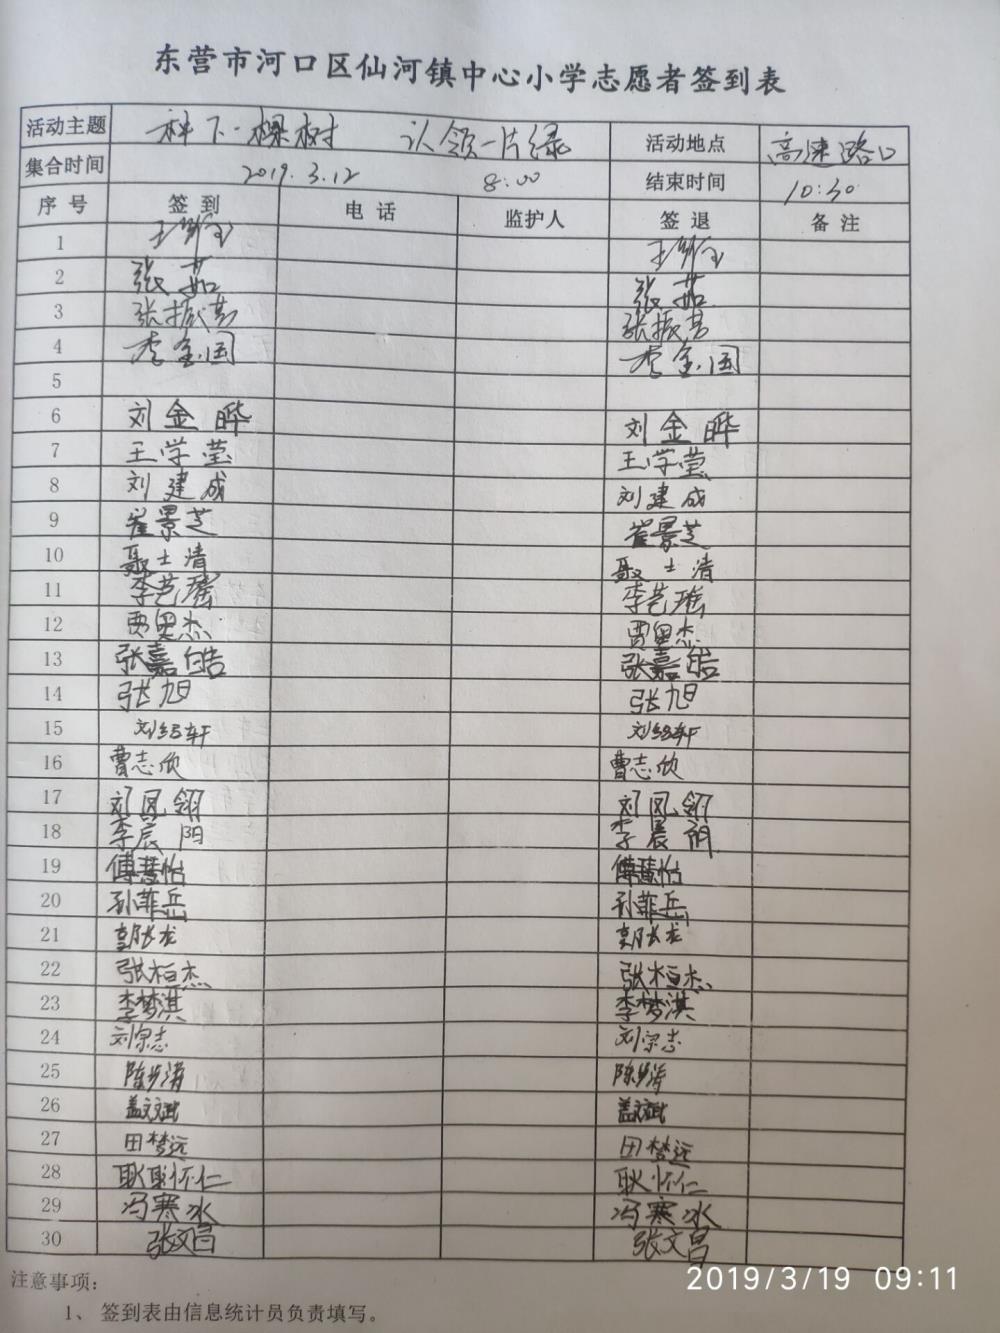 东营市河口区仙河镇中心小学志愿者签到表
活动主题 种下一棵树 认领一片绿 活动地点 高速路口
集合时间 2019.3.12 8:00 结束时间 10:30
序号 签到 电话 监护人 签退 备注
1 王
2 张茹 张茹
3 张振芳 张振芳
4 李金国 李金国
5
6 刘金晔 刘金晔
7 王学莹 王学莹
8 刘建成 刘建成
9 崔景芝 崔景芝
10 聂士清 聂士清
11 李艺瑶 李艺瑶
12 贾思杰 贾思杰
13 张嘉皓 张嘉皓
14 张旭 张旭
15 刘绍轩 刘绍轩
16 曹志欣 曹志欣
17 刘凤翎 刘凤翎
18 李晨阳 李晨阳
19 傅慧怡 傅慧怡
20 孙菲岳 孙菲岳
21
22 张柏杰 张柏杰
23 李梦淇 李梦淇
24 刘宗志 刘宗志
25 陈步涛 陈步涛
26 盖文斌 盖文斌
27 田梦远 田梦远
28 耿怀仁 耿怀仁
29 冯寒冰 冯寒冰
30 张文昌 张文昌
注意事项:
1、签到表由信息统计员负责填写。
2019/3/19 09:11